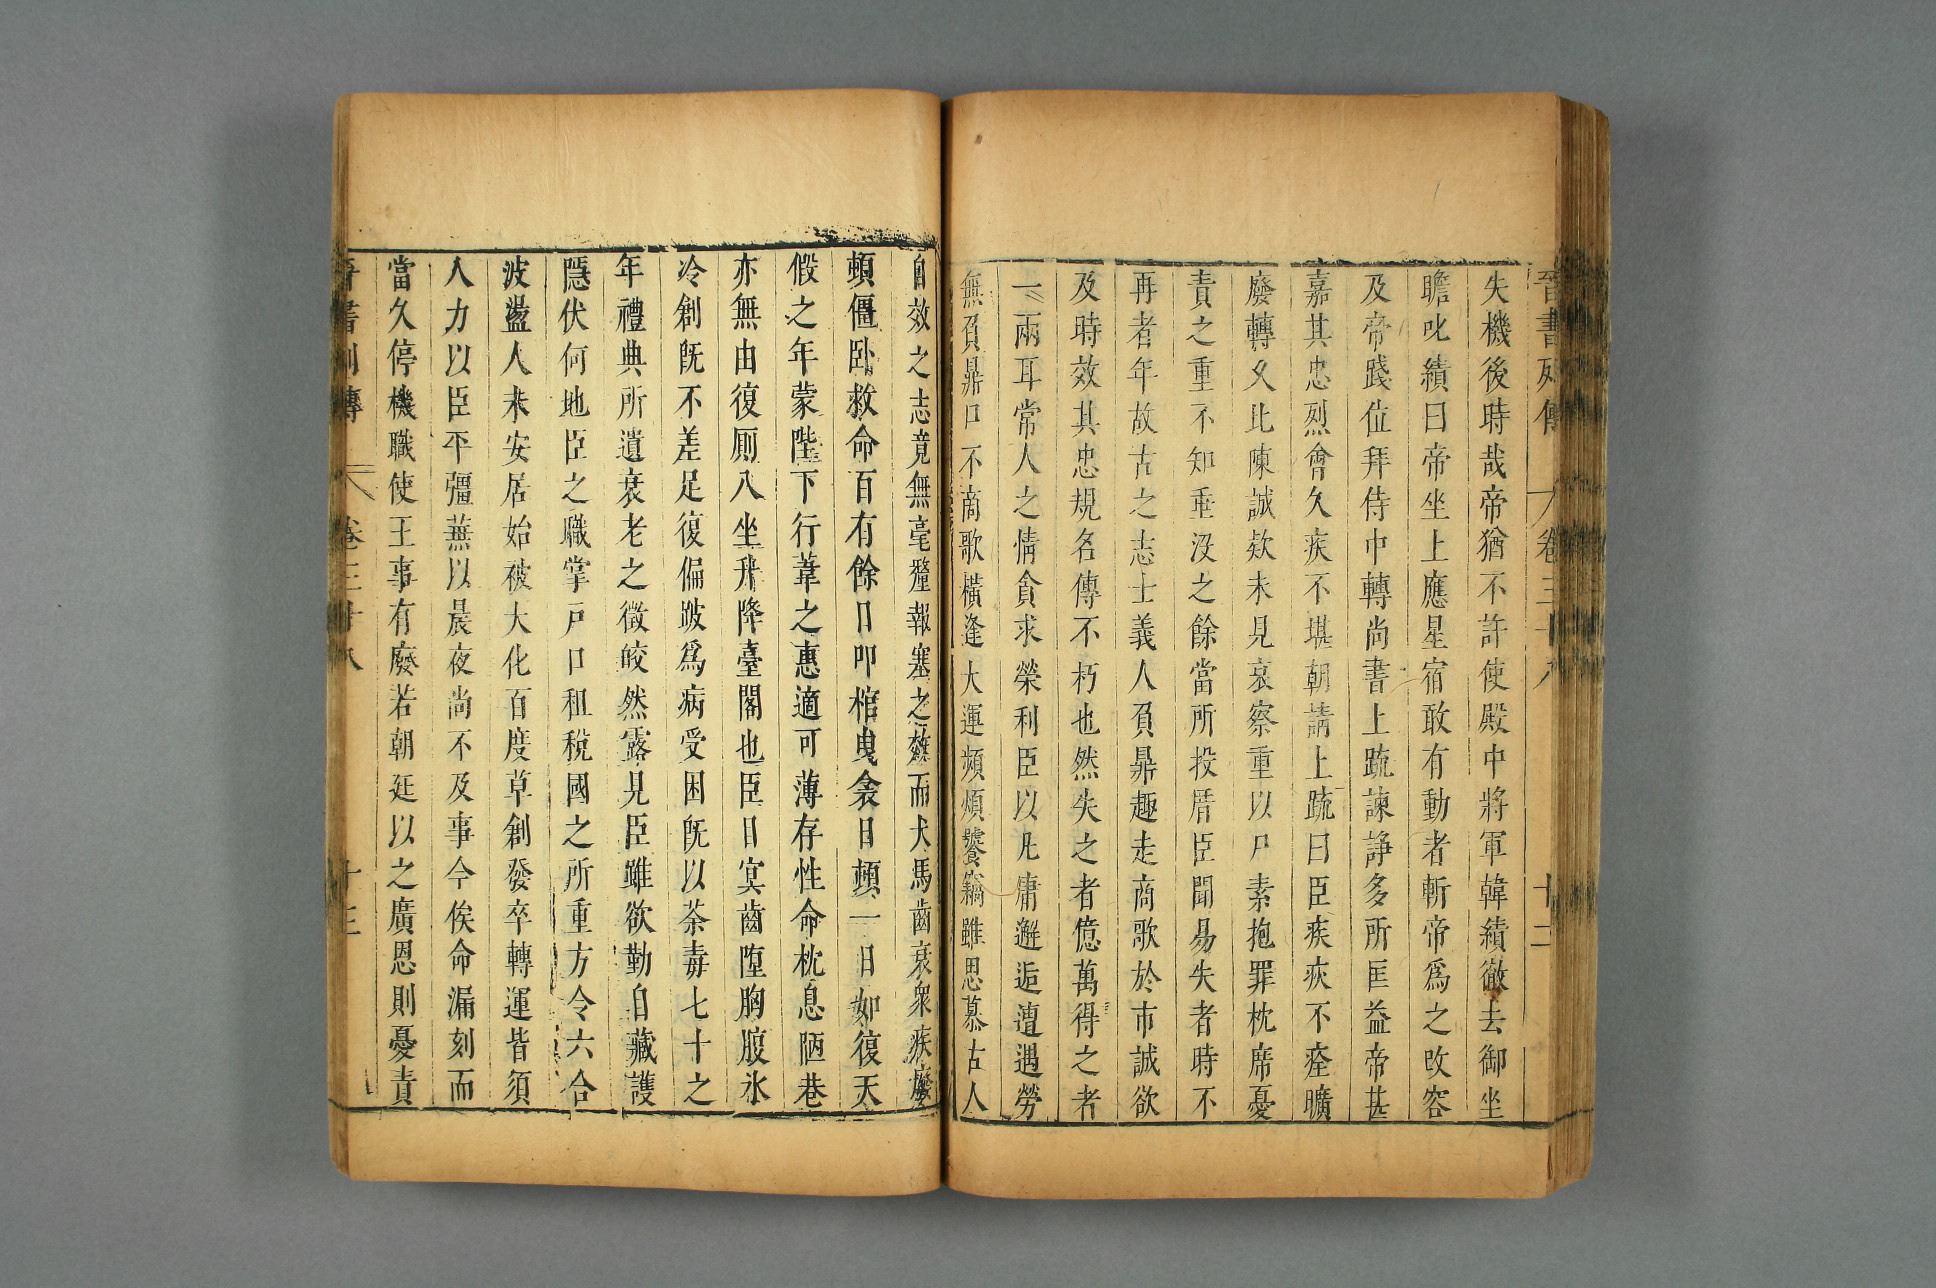 晉書列傳 卷三十八 十二
失機後時哉帝猶不許使殿中將軍韓績徹去御坐
瞻叱績曰帝坐上應星宿敢有動者斬帝爲之改容
及帝踐位拜侍中轉尚書上疏諫諍多所匡益帝甚
嘉其忠烈會久疾不堪朝請上疏曰臣疾疢不痊曠
廢轉久比陳誠欵未見哀察重以尸素抱罪枕席憂
責之重不知垂没之餘當所投厝臣聞易失者時不
再者年故古之志士義人負鼎趣走商歌於市誠欲
及時效其忠規名傳不朽也然失之者億萬得之者
一兩耳常人之情貪求榮利臣以凡庸邂逅遭遇勞
無負鼎口不商歌橫逢大運頻煩饕竊雖思慕古人
自效之志竟無毫釐報塞之效而犬馬齒衰衆疾廢
頓僵卧救命百有餘日叩棺曳衾日頓一日如復天
假之年蒙陛下行葦之惠適可薄存性命枕息陋巷
亦無由復厠八坐升降臺閣也臣目冥齒墮胸腹氷
冷創旣不差足復偏跛爲病受困旣以荼毒七十之
年禮典所遺衰老之徵皎然露見臣雖欲勤自藏護
隱伏何地臣之職掌戸口租税國之所重方今六合
波盪人未安居始被大化百度草創發卒轉運皆須
人力以臣平彊蕪以晨夜尚不及事今俟命漏刻而
當久停機職使王事有廢若朝廷以之廣恩則憂責
晉書列傳 卷三十八 十三